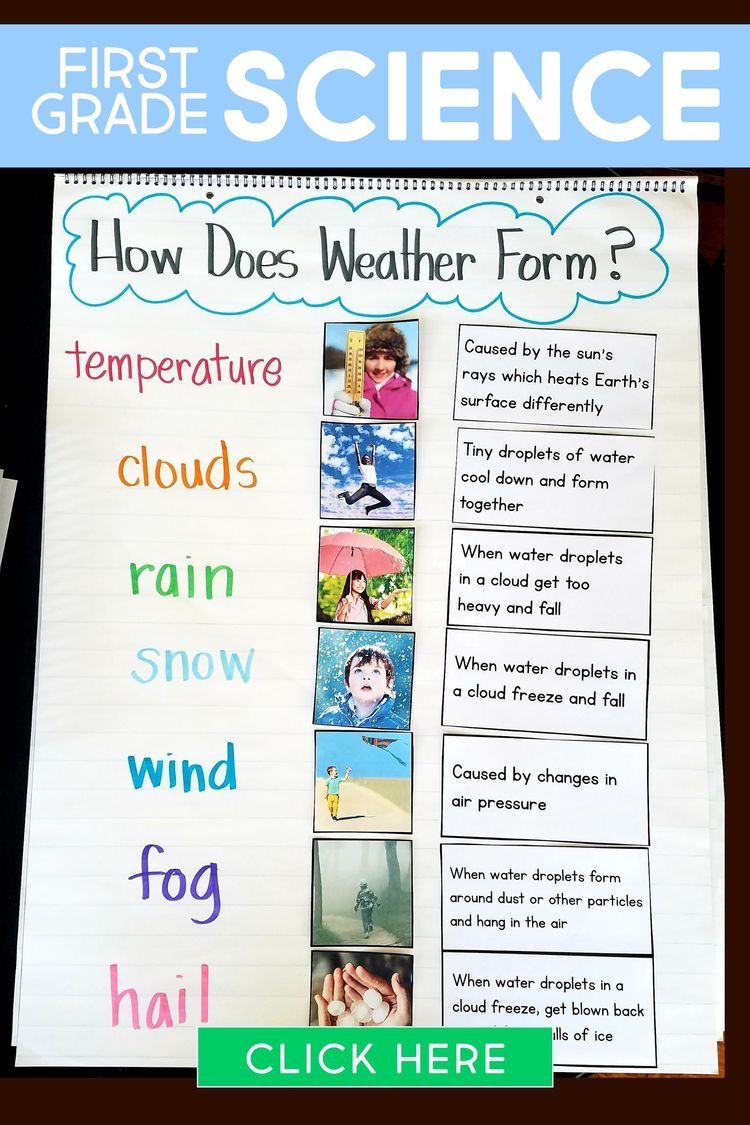 FIRST
GRADE
SCIENCE
How Does Weather Form?
temperature
Caused by the sun's
rays which heats Earth's
surface differently
clouds
Tiny droplets of water
cool down and form
together
rain
When water droplets
in a cloud get too
heavy and fall
snow
When water droplets in
a cloud freeze and fall
wind
Caused by changes in
air pressure
fog
When water droplets form
around dust or other particles
and hang in the air
hail
When water droplets in a
cloud freeze, get blown back
of ice
CLICK HERE